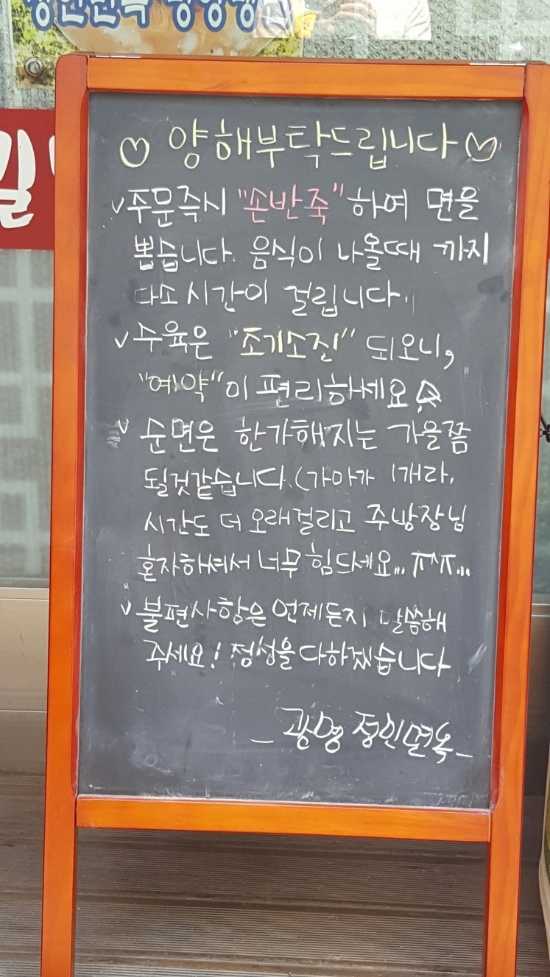 정인면옥 평양냉
길
♡ 양해부탁드립니다 ♡
✓주문즉시 "손반죽"하여 면을
뽑습니다. 음식이 나올때 까지
다소 시간이 걸립니다.
✓수육은 "조기소진" 되오니,
"예약"이 편리하세요
✓순면은 한가해지는 가을쯤
될것같습니다.(가마가 1개라,
시간도 더 오래걸리고 주방장님
혼자하셔서 너무 힘드세요... ㅠㅠ...
✓불편사항은 언제든지 말씀해
주세요! 정성을 다하겠습니다
_ 광명 정인면옥 _